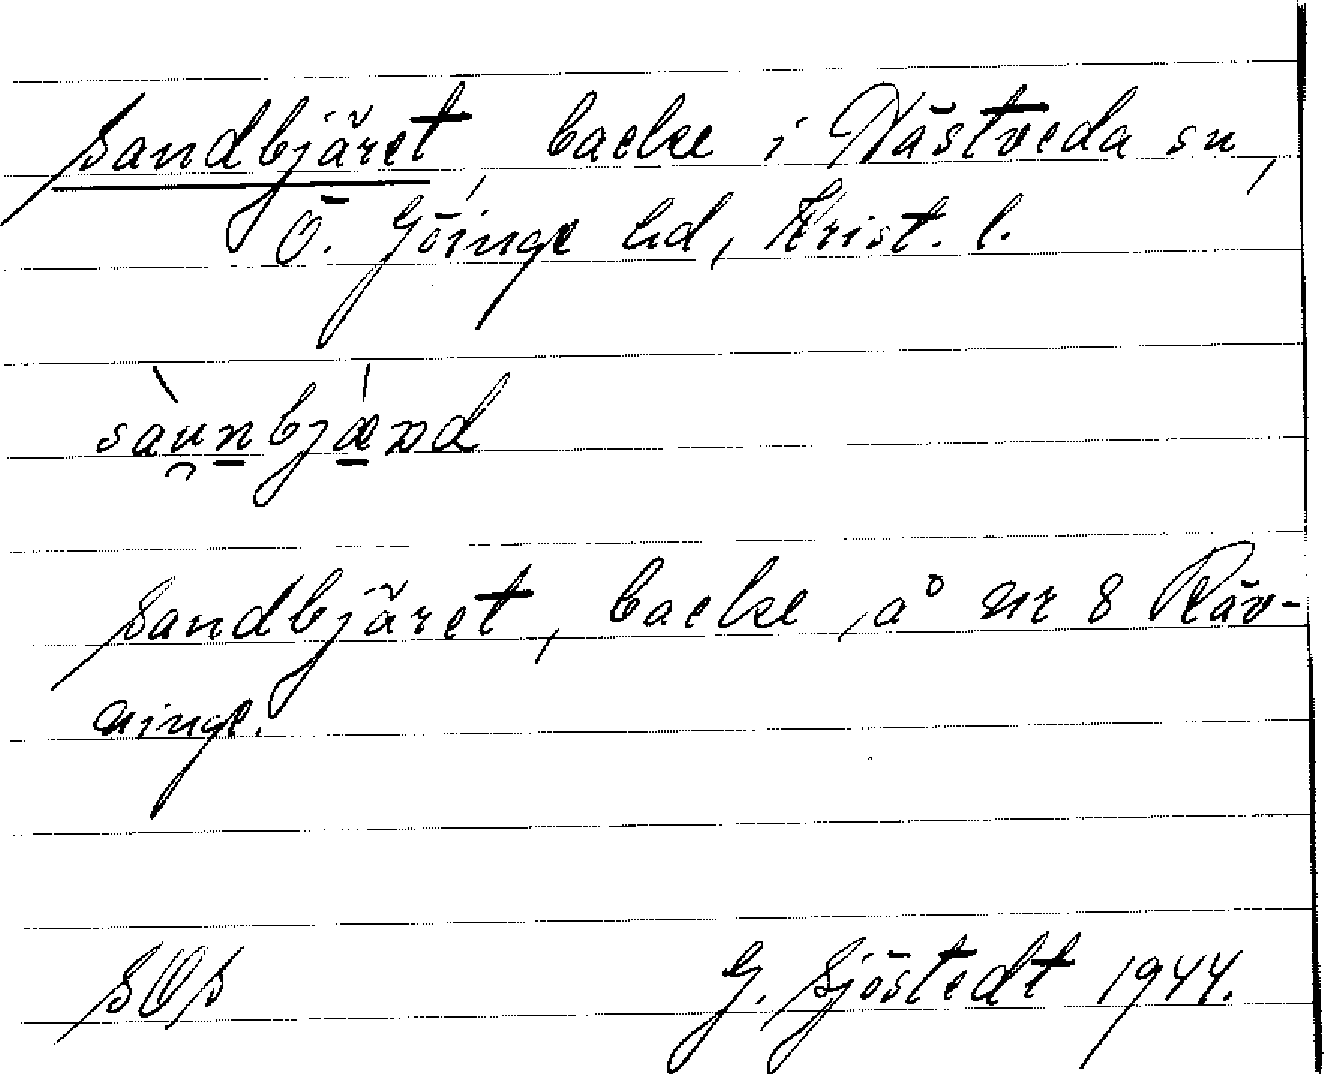 Sandbjäret backe i Nästveda sn,
Ö. Göinge hd, Krist. l.
Sandbjäret, backe, å nr 8 Räv-
ninge.
SOS G. Sjöstedt 1944.